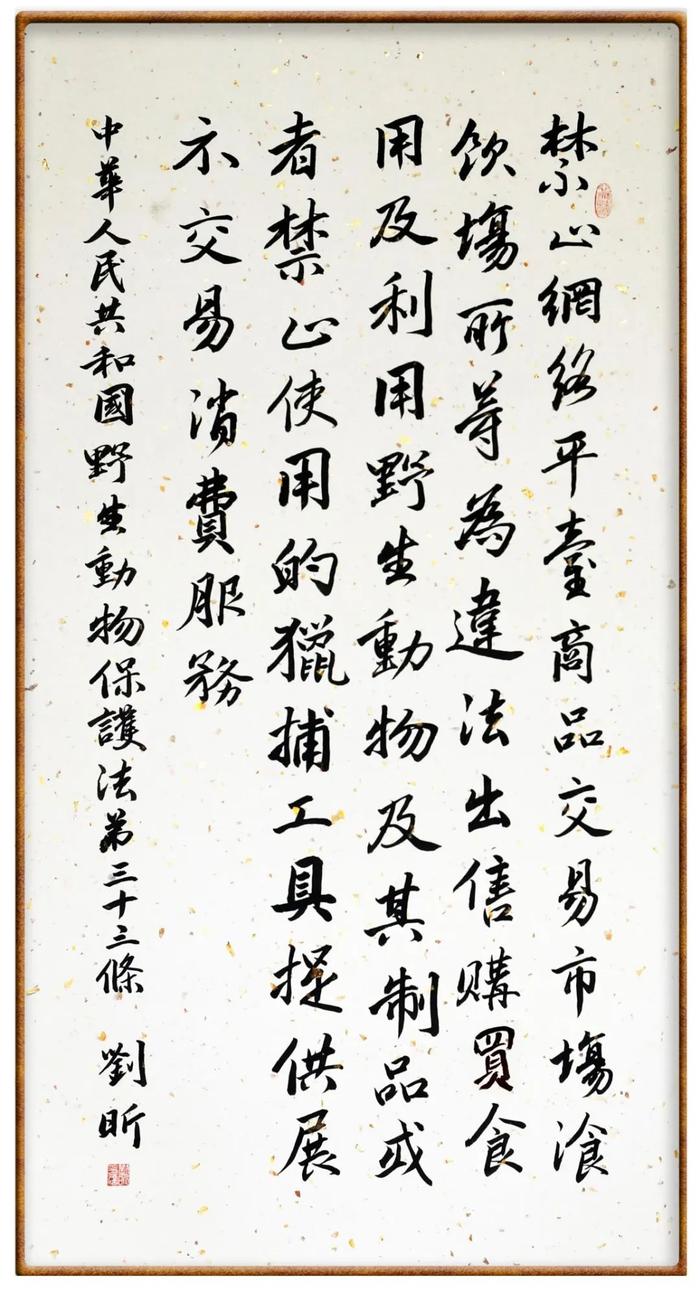 禁止網絡平臺商品交易市場湌
飲場所等為違法出售購買食
用及利用野生動物及其制品或
者禁止使用的獵捕工具提供展
示交易消費服務
中華人民共和國野生動物保護法第三十三條 劉昕